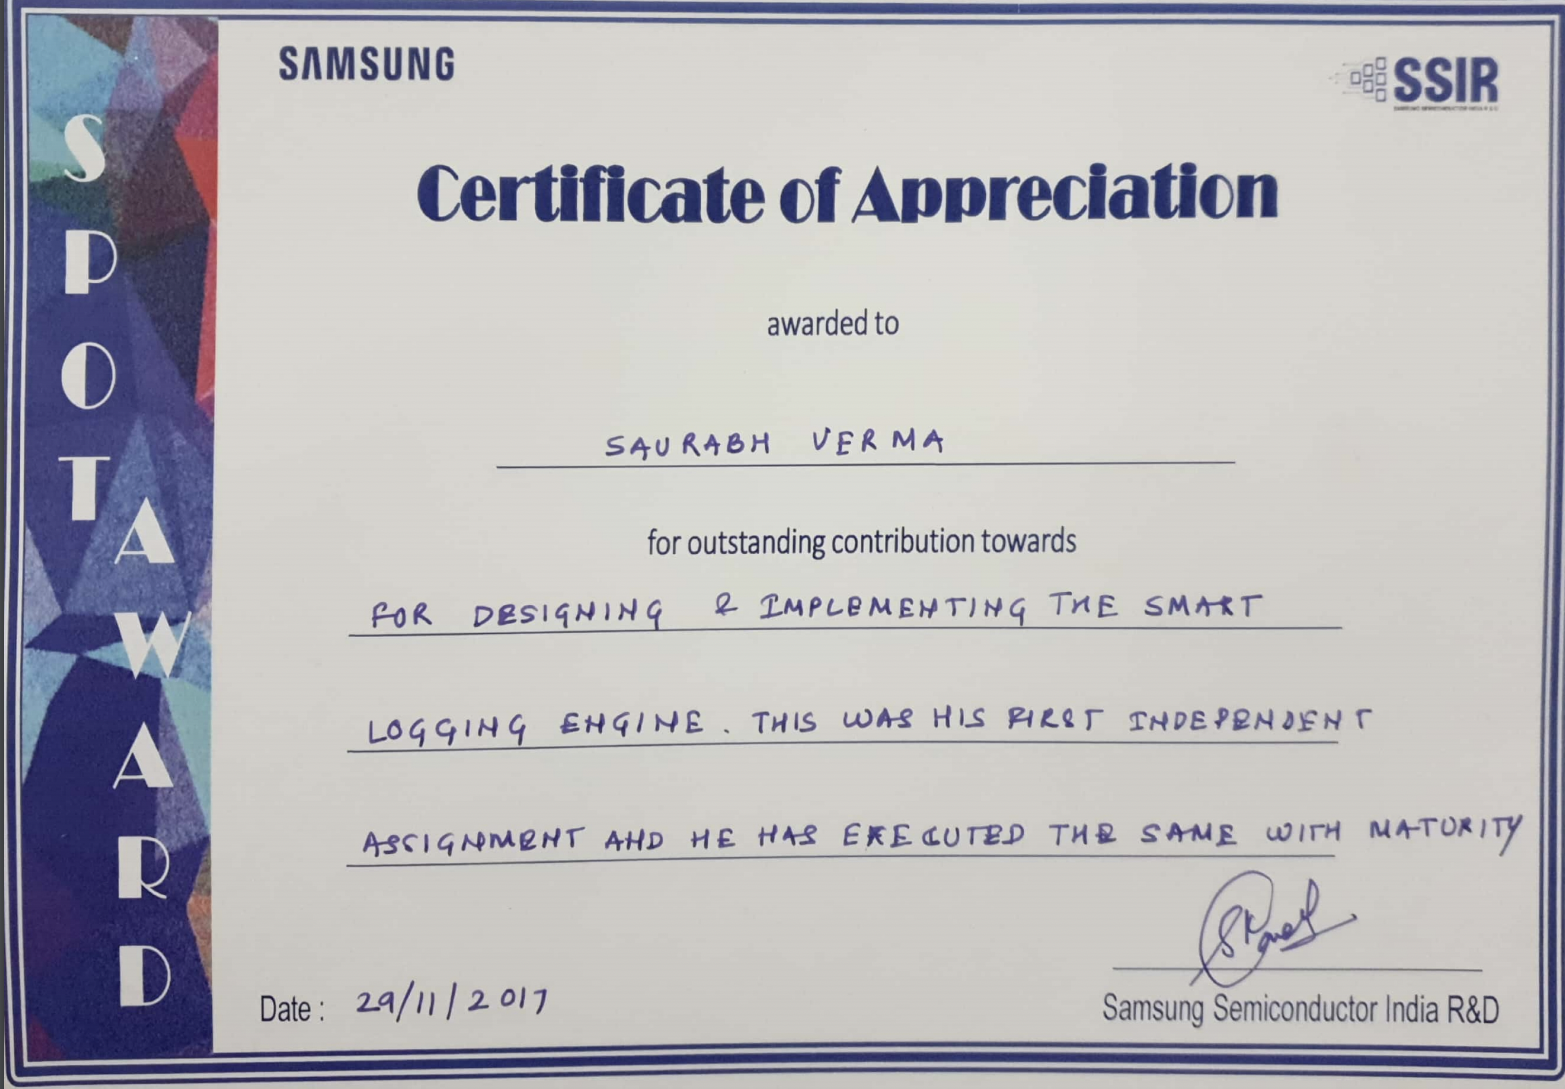 SAMSUNG
SSIR
Certificate of Appreciation
awarded to
SAURABH VERMA
for outstanding contribution towards
FOR DESIGNING & IMPLEMENTING THE SMART
LOGGING ENGINE. THIS WAS HIS FIRST INDEPENDENT
ASSIGNMENT AND HE HAS EXECUTED THE SAME WITH MATURITY
Date : 29/11/2017
Samsung Semiconductor India R&D
SPOT AWARD